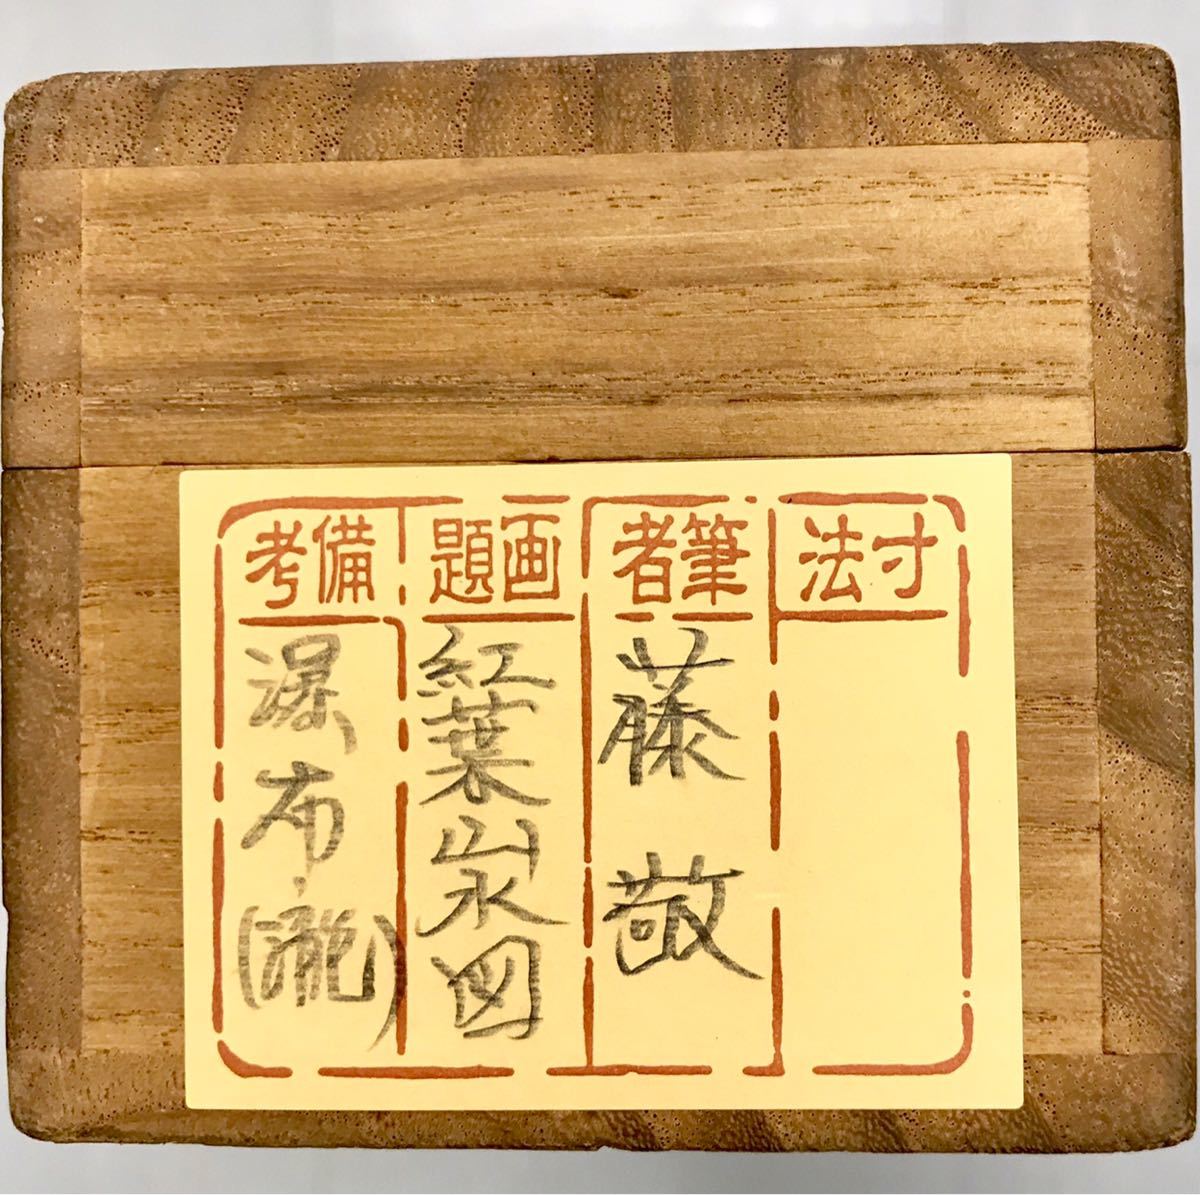 寸法
筆者
藤敬
画題
紅葉山水図
備考
瀑布(瀧)